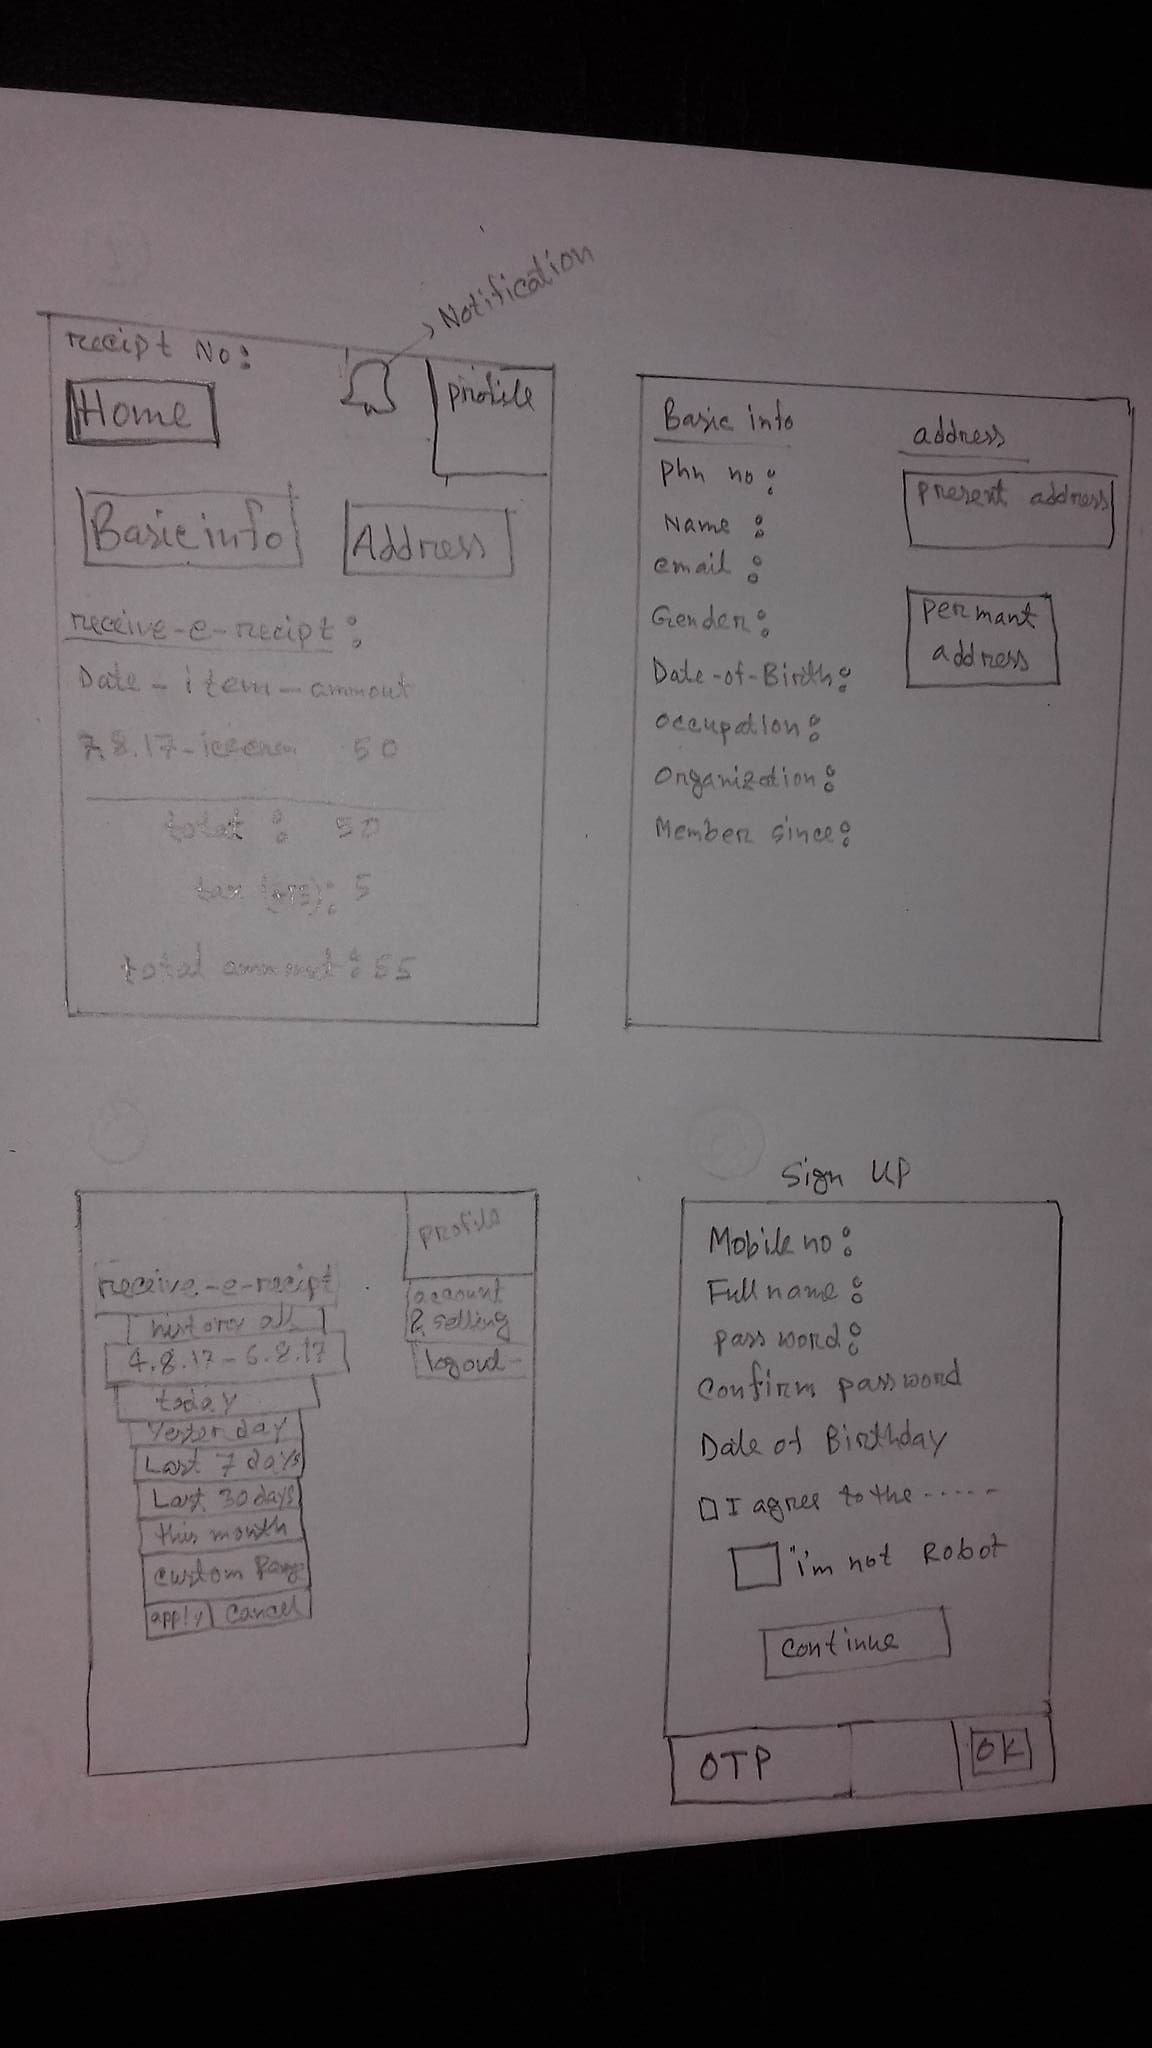 Notification
receipt No:
Home
profile
Basic info
Address
receive-e-recipt:
Date - item - ammout
7.8.17 - 50
total : 50
tax : 5
total : 55
Basic info
Phn no :
Name :
email :
Gender :
Date-of-Birth :
Occupation :
Organization :
Member since :
address
present address
permant
address
profile
account
& selling
logout
receive-e-recipt
all
4.8.17 - 6.8.17
today
Yesterday
Last 7 days
Last 30 days
this month
custom
apply cancel
Sign UP
Mobile no :
Full name :
password :
Confirm password
Date of Birthday
I agree to the ------
"i'm not Robot
Continue
OTP
OK